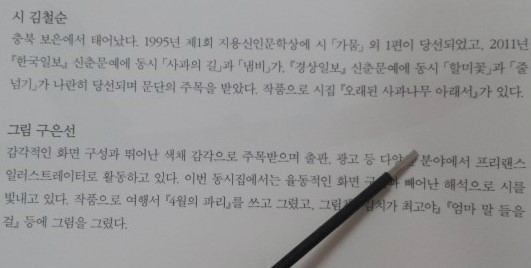 시 김철순
충북 보은에서 태어났다. 1995년 제1회 지용신인문학상에 시 「가뭄」 외 1편이 당선되었고, 2011년
『한국일보』 신춘문예에 동시 「사과의 길」과 「냄비」가, 『경상일보』 신춘문예에 동시 「할미꽃」과 「줄
넘기」가 나란히 당선되며 문단의 주목을 받았다. 작품으로 시집 『오래된 사과나무 아래서』가 있다.
그림 구은선
감각적인 화면 구성과 뛰어난 색채 감각으로 주목받으며 출판, 광고 등 분야에서 프리랜스
일러스트레이터로 활동하고 있다. 이번 동시집에서는 율동적인 화면 빼어난 해석으로 시를
빛내고 있다. 작품으로 여행서 『4월의 파리』를 쓰고 그렸고, 최고야』 『엄마 말 들을
걸』 등에 그림을 그렸다.